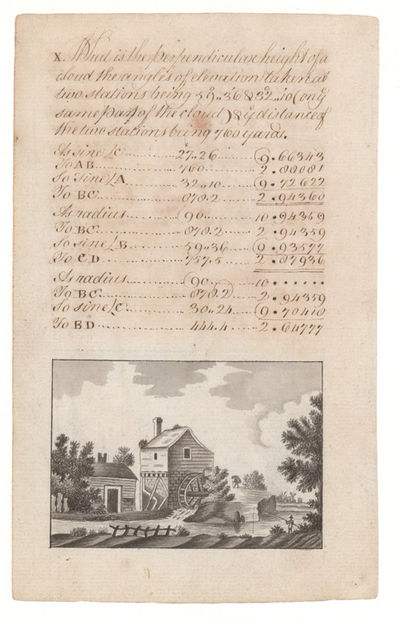 X. What is the perpendicular height of a
cloud the angles of elevation taken at
two stations being 59..36 & 32..10 (on y
same part of the cloud) & y distance of
the two stations being 760 yards.
As sine C 27..26 9.66343
To AB 760 2.88081
So sine A 32..10 9.72622
To BC 878.2 2.94360
As radius 90 10.94359
To BC 878.2 2.94359
So sine B 59..36 9.93577
To CD 757.5 2.87936
As radius 90 10......
To BC 878.2 2.94359
So sine C 30..24 9.70418
To BD 444.4 2.64777